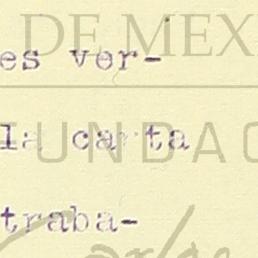 DE MEX
es ver-
la carta
FUNDAC
traba-